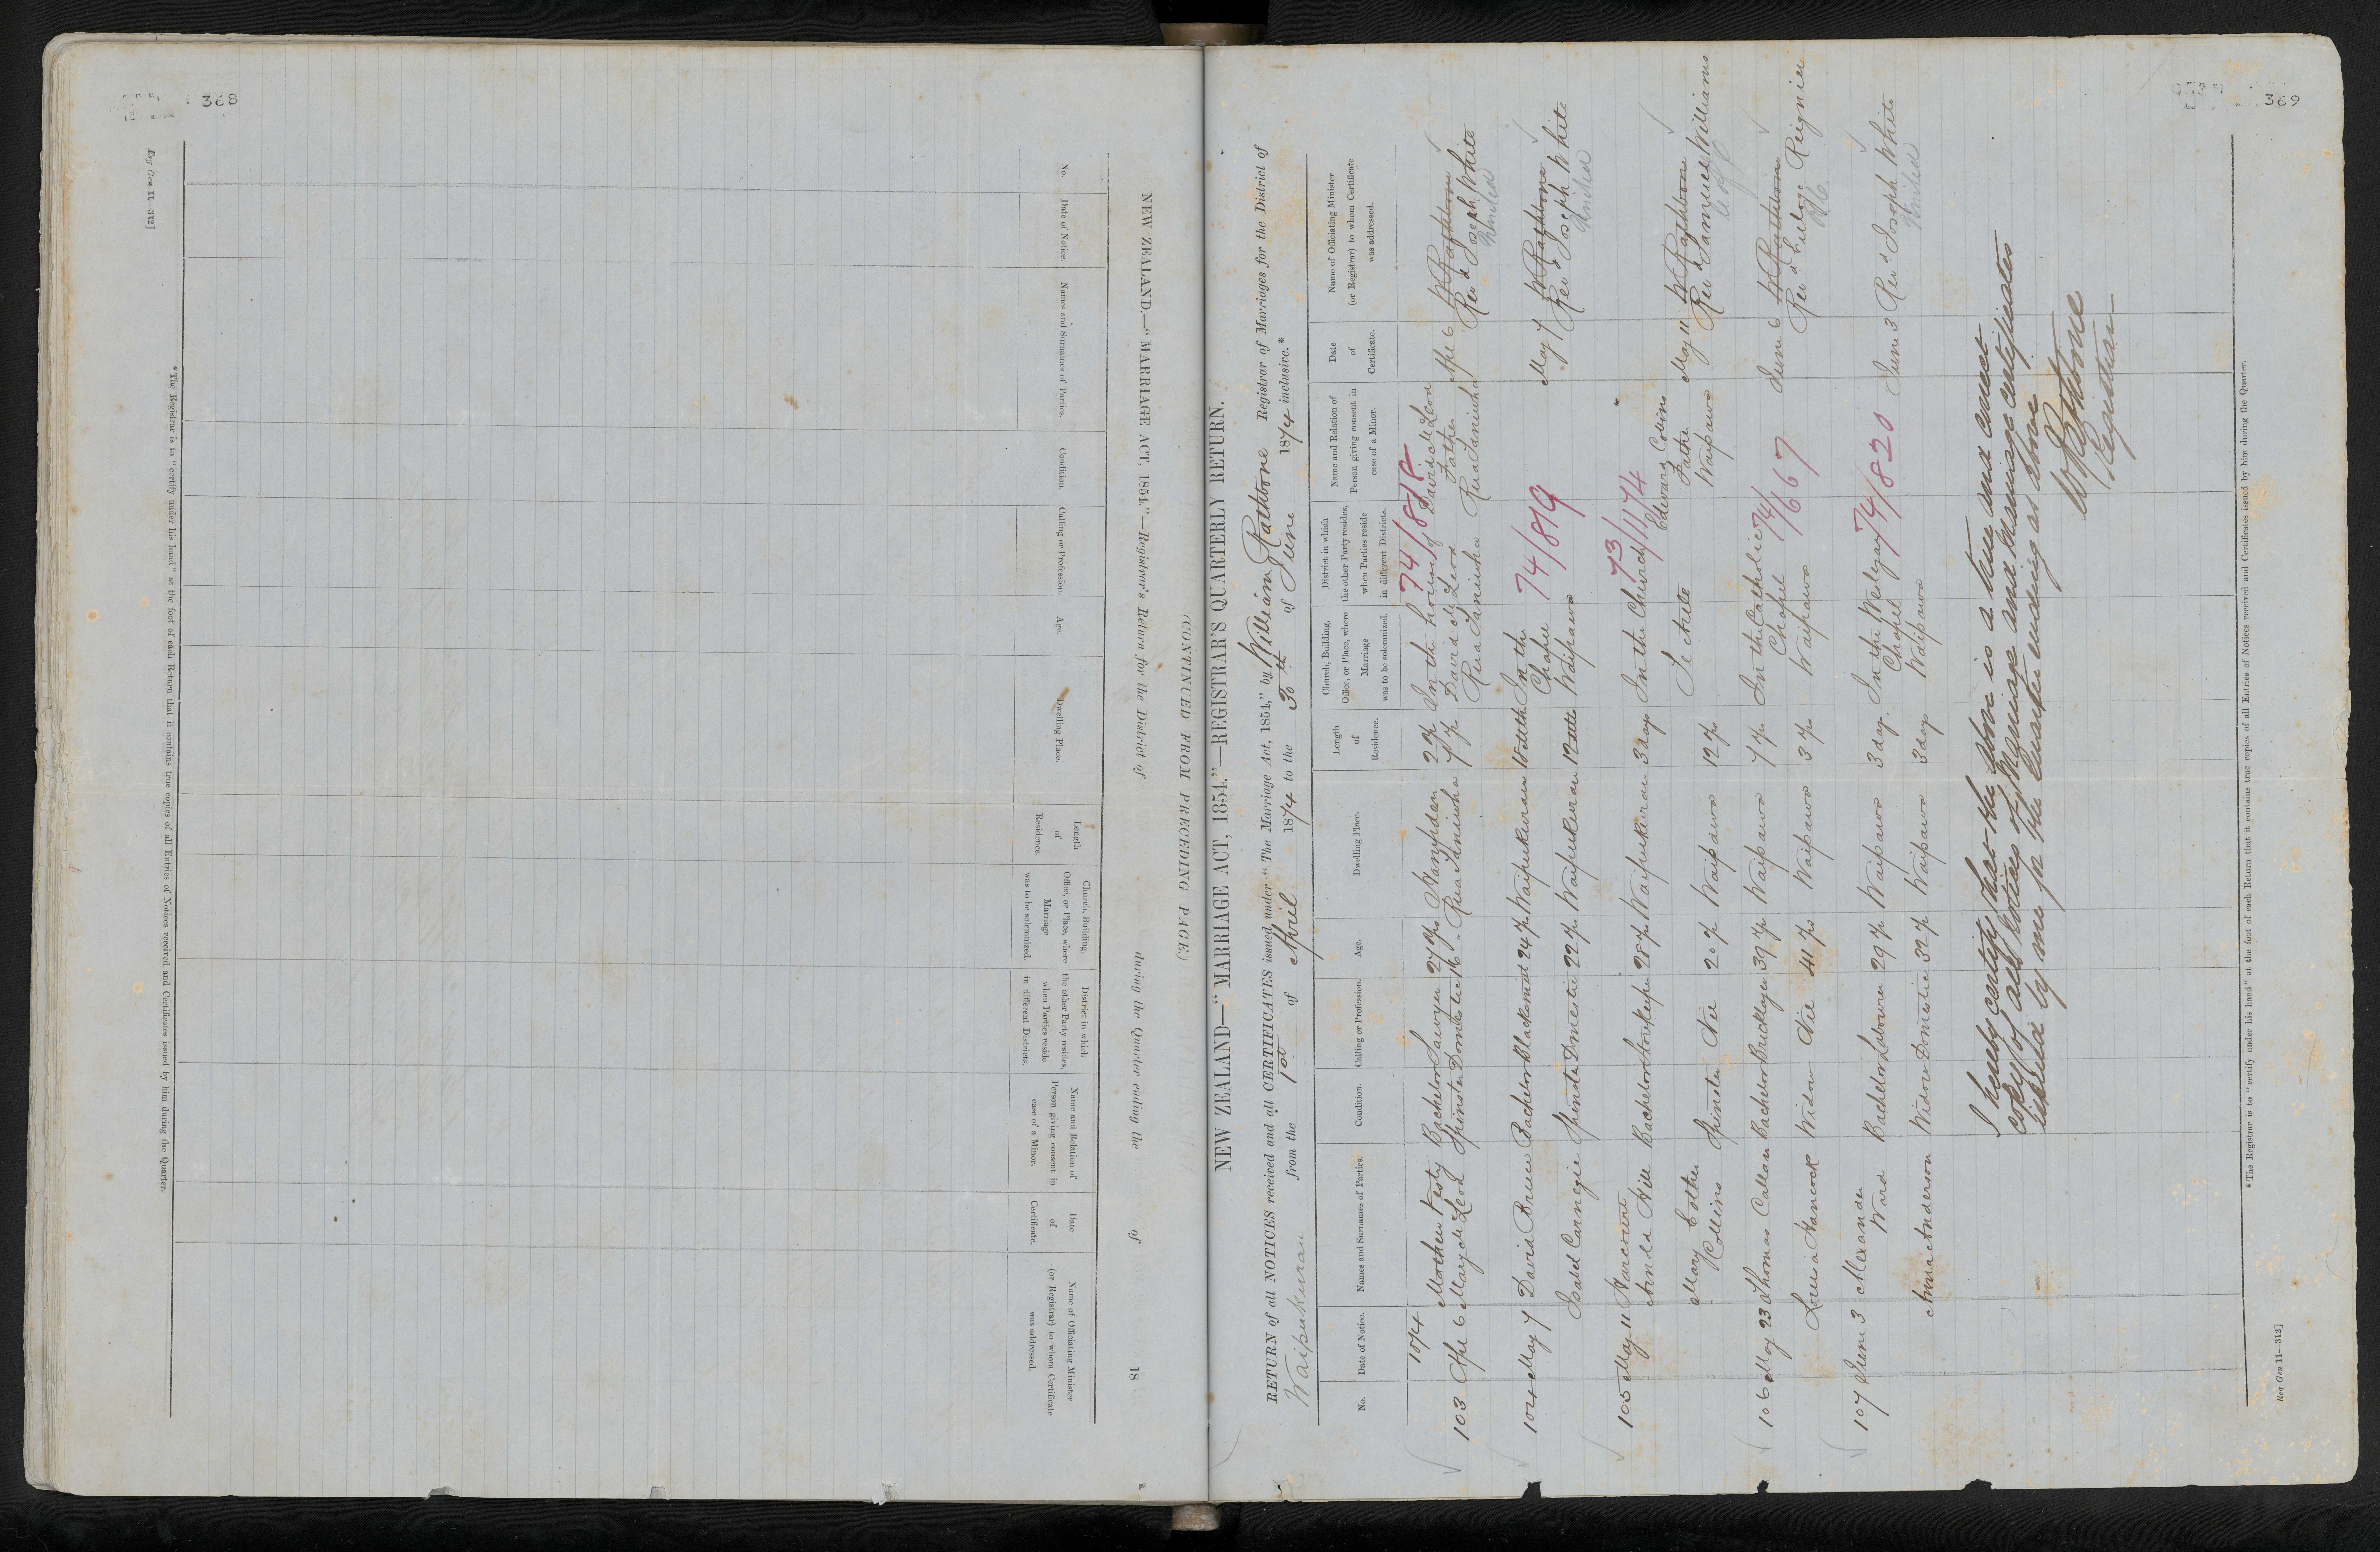 368
Reg Gen 11—312]
No.
Date of Notice.
Names and Surnames of Parties.
Condition.
Calling or Profession.
Age.
Dwelling Place.
Length of Residence.
Church, Building, Office, or Place, where Marriage was to be solemnized.
District in which the other Party resides, when Parties reside in different Districts.
Name and Relation of Person giving consent in case of a Minor.
Date of Certificate.
Name of Officiating Minister (or Registrar) to whom Certificate was addressed.
NEW ZEALAND.—"MARRIAGE ACT, 1854."—Registrar's Return for the District of during the Quarter ending the of 18
(CONTINUED FROM PRECEDING PAGE.)
*The Registrar is to "certify under his hand" at the foot of each Return that it contains true copies of all Entries of Notices received and Certificates issued by him during the Quarter.
369
NEW ZEALAND—"MARRIAGE ACT, 1854."—REGISTRAR'S QUARTERLY RETURN.
RETURN of all NOTICES received and all CERTIFICATES issued under "The Marriage Act, 1854," by William Rathbone Registrar of Marriages for the District of
Waipukurau from the 1st of April 1874 to the 30th of June 1874 inclusive.*
No.
Date of Notice.
Names and Surnames of Parties.
Condition.
Calling or Profession.
Age.
Dwelling Place.
Length of Residence.
Church, Building, Office, or Place, where Marriage was to be solemnized.
District in which the other Party resides, when Parties reside in different Districts.
Name and Relation of Person giving consent in case of a Minor.
Date of Certificate.
Name of Officiating Minister (or Registrar) to whom Certificate was addressed.
1874
74/818
Bachelor Sawyer 27 Yrs Hampden 2 Yr In the house of David McLeod W Rathbone
103 Apl 6 Mary McLeod Spinster Domestic 16 " Rua Taniwha 7 Yr David McLeod Father Apl 6 Revd Joseph White
Rua Taniwha Rua Taniwha United
74/819
104 May 7 David Brown Bachelor Blacksmith 24 Yr Waipukurau 18 mths In the W Rathbone
Chapel May 7 Revd Joseph White
Isabel Carnegie Spinster Domestic 22 Yr Waipukurau 12 mths Waipawa United
73/1174
105 May 11 Harcourt
Arnold Hill Bachelor Storekeeper 28 Yr Waipukurau 3 days In the Church Edward Collins W Rathbone
Mary Esther Father May 11 Revd Samuel Williams
Collins Spinster Nil 20 Yr Waipawa 12 Yr Te Aute Waipawa C of E
74/667
106 May 23 Thomas Callan Bachelor Bricklayer 39 Yr Waipawa 7 Yr In the Catholic June 6 W Rathbone
Chapel Revd Reignier
Louisa Hancock Widow Nil 41 Yrs Waipawa 3 Yr Waipawa RC
74/820
107 June 3 Alexander
Ward Bachelor Labourer 29 Yr Waipawa 3 days In the Wesleyan June 3 Revd Joseph White
Chapel United
Anna Anderson Widow Domestic 32 Yr Waipawa 3 days Waipawa
I hereby certify that the above is a true and correct
copy of all Notices of Marriage and Marriage certificates
issued by me for the quarter ending as above
W Rathbone
Registrar
*The Registrar is to "certify under his hand" at the foot of each Return that it contains true copies of all Entries of Notices received and Certificates issued by him during the Quarter.
Reg Gen 11—312]